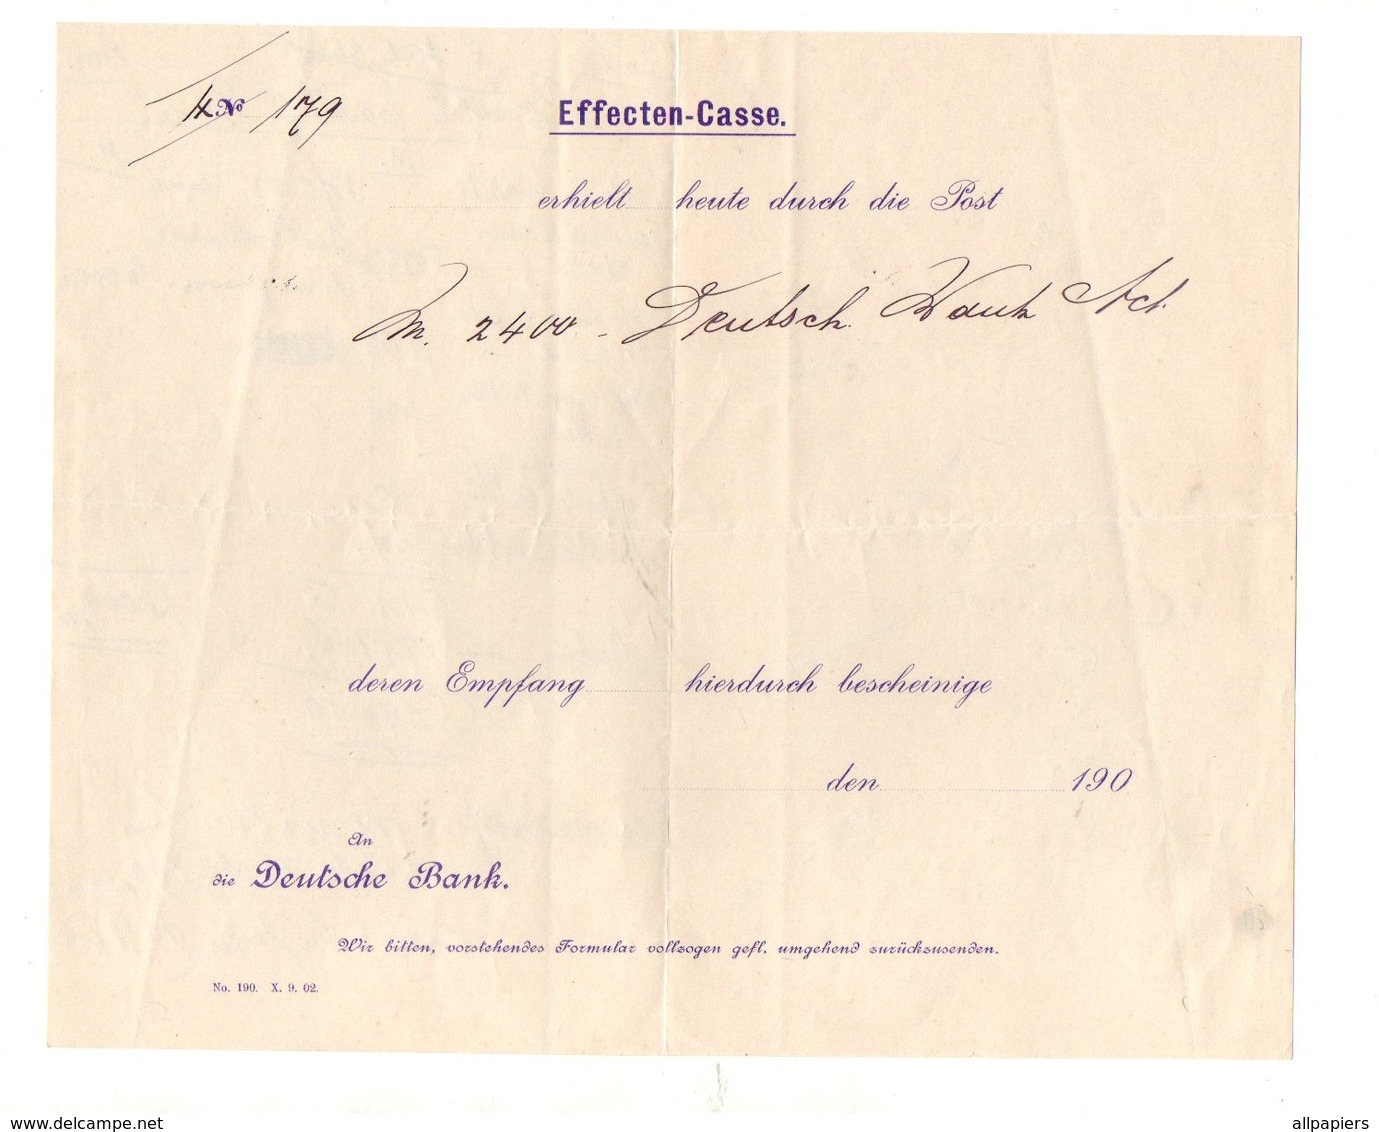 H No 179
Effecten-Casse.
erhielt heute durch die Post
M. 2400 - Deutsch. Bank Act.
deren Empfang hierdurch bescheinige
den 190
An
die Deutsche Bank.
Wir bitten, vorstehendes Formular vollzogen gefl. umgehend zurückzusenden.
No. 190. X. 9. 02.
www.delcampe.net
allpapiers